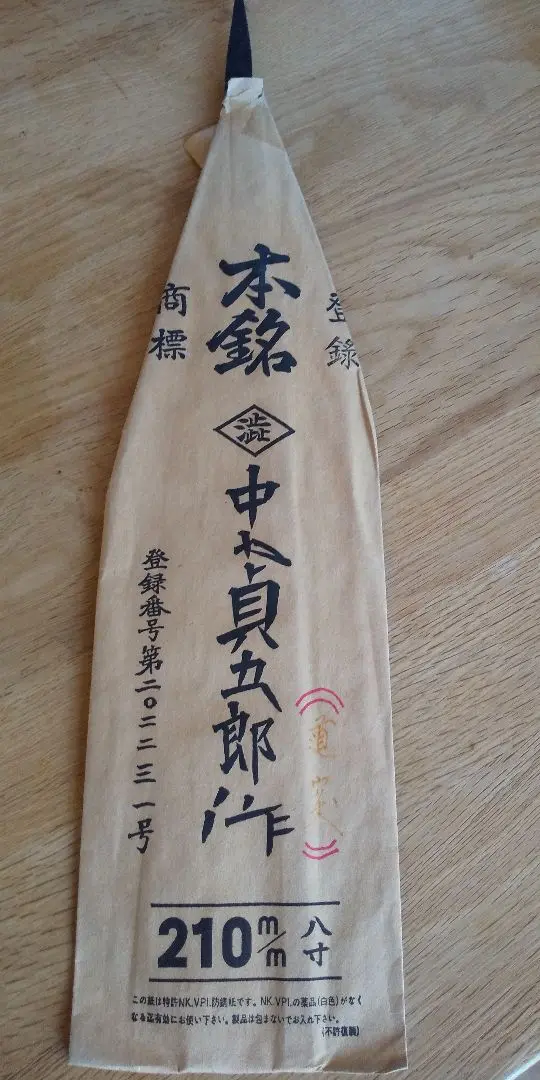 登録
商標
本銘
澁
中や貞五郎作
登録番号第二〇二二三一号
210m/m 八寸
この紙は特許NK.VPI.防錆紙です。NK.VPI.の薬品(白色)がなく
なる迄有効にお使い下さい。製品は包まないでお入れ下さい。
(不許復製)